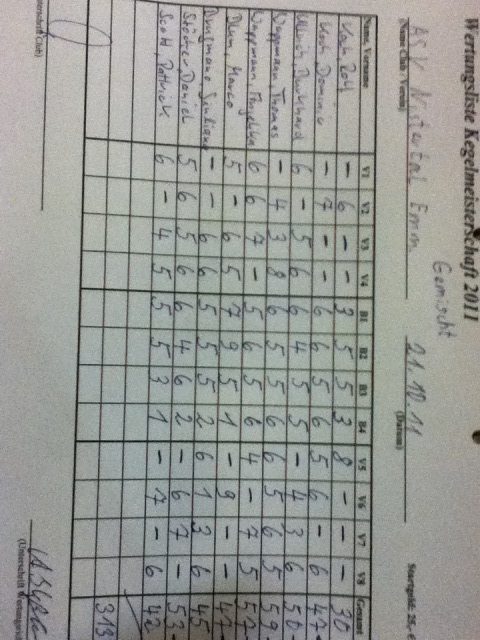 Wertungsliste Kegelmeisterschaft 2011
Gemischt
ASV Nistertal 21.10.11 Startgeld: 28,-
(Name Club / Verein) (Datum)
Name, Vorname V1 V2 V3 V4 B1 B2 B3 B4 V5 V6 V7 V8 Gesamt
Koch Rolf - 6 - - 3 5 5 3 8 - - - 30
Koch Dominic - 7 - - 6 6 5 6 5 6 - 6 47
Ullrich Burkhard 6 - 5 6 6 4 5 5 - 4 3 6 50
Wappmann, Thomas - 4 3 8 6 5 5 6 6 5 6 5 59
Wappmann Angelika 6 6 7 - 5 6 5 6 4 - 7 5 57
Blum, Marco 5 - 6 5 7 9 5 1 - 9 - - 47
- - 6 6 5 5 5 2 6 1 3 6 45
Städter Daniel 5 6 5 6 6 4 6 2 - 6 7 - 53
Scott, Patrick 6 - 4 5 5 5 3 1 - 7 - 6 42
313